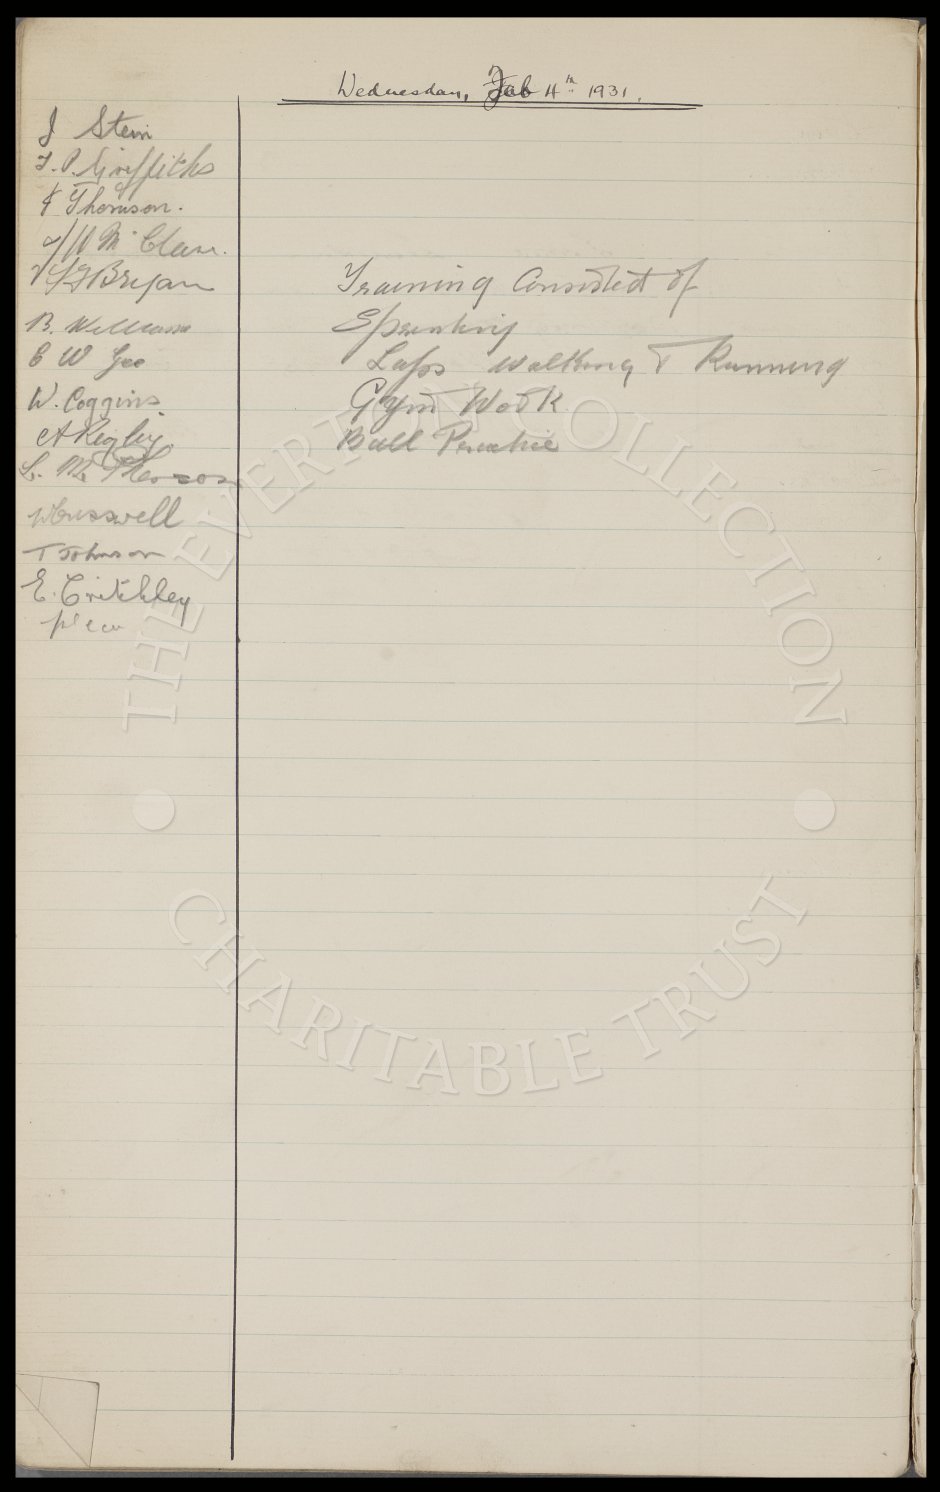 Wednesday, Feb 4th 1931.
J Stein
T. P. Griffiths
J Thomson.
A/W Mc Clure.
Bryan
B. Williams
C W Gee
W. Coggins.
A Rigby.
L. Mc Pherson
W Cresswell
T Johnson
E. Critchley
Training Consisted of
Sprinting
Laps Walking & Running
Gym Work
Ball Practice
THE EVERTON COLLECTION
CHARITABLE TRUST